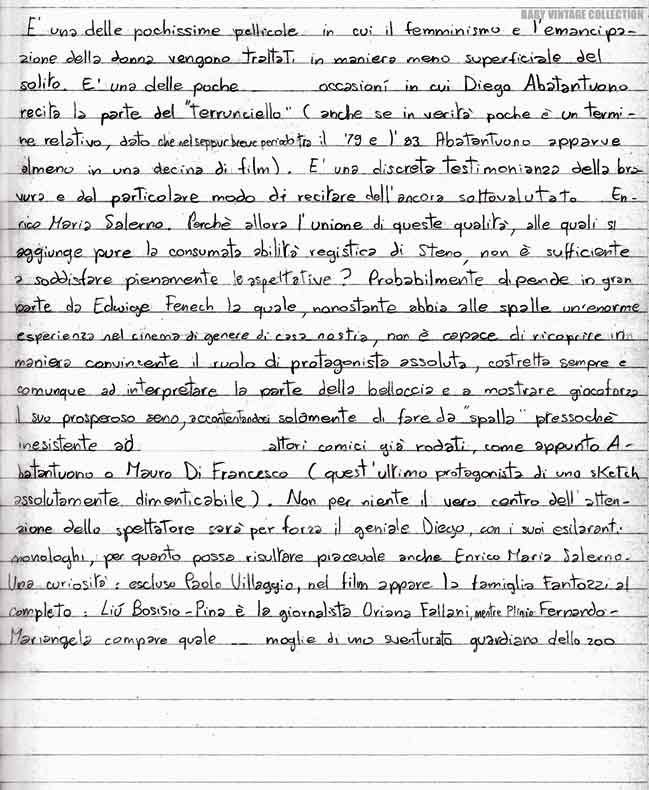 BABY VINTAGE COLLECTION
E' una delle pochissime pellicole in cui il femminismo e l'emancipa-
zione della donna vengono trattati in maniera meno superficiale del
solito. E' una delle poche occasioni in cui Diego Abatantuono
recita la parte del "terrunciello" (anche se in verità poche è un termi-
ne relativo, dato che nel seppur breve periodo tra il '79 e l' 83 Abatantuono apparve
almeno in una decina di film). E' una discreta testimonianza della bra-
vura e del particolare modo di recitare dell'ancora sottovalutato En-
rico Maria Salerno. Perchè allora l'unione di queste qualità, alle quali si
aggiunge pure la consumata abilità registica di Steno, non è sufficiente
a soddisfare pienamente le aspettative? Probabilmente dipende in gran
parte da Edwige Fenech la quale, nonostante abbia alle spalle un'enorme
esperienza nel cinema di genere di casa nostra, non è capace di ricoprire in
maniera convincente il ruolo di protagonista assoluta, costretta sempre e
comunque ad interpretare la parte della belloccia e a mostrare giocoforza
il suo prosperoso seno, accontentandosi solamente di fare da "spalla" pressochè
inesistente ad attori comici già rodati, come appunto A-
batantuono o Mauro Di Francesco (quest'ultimo protagonista di uno sketch
assolutamente dimenticabile). Non per niente il vero centro dell'atten-
zione dello spettatore sarà per forza il geniale Diego, con i suoi esilaranti
monologhi, per quanto possa risultare piacevole anche Enrico Maria Salerno.
Una curiosità: escluso Paolo Villaggio, nel film appare la famiglia Fantozzi al
completo: Liù Bosisio-Pina è la giornalista Oriana Fallani, mentre Plinio Fernando-
Mariangela compare quale moglie di uno sventurato guardiano dello zoo